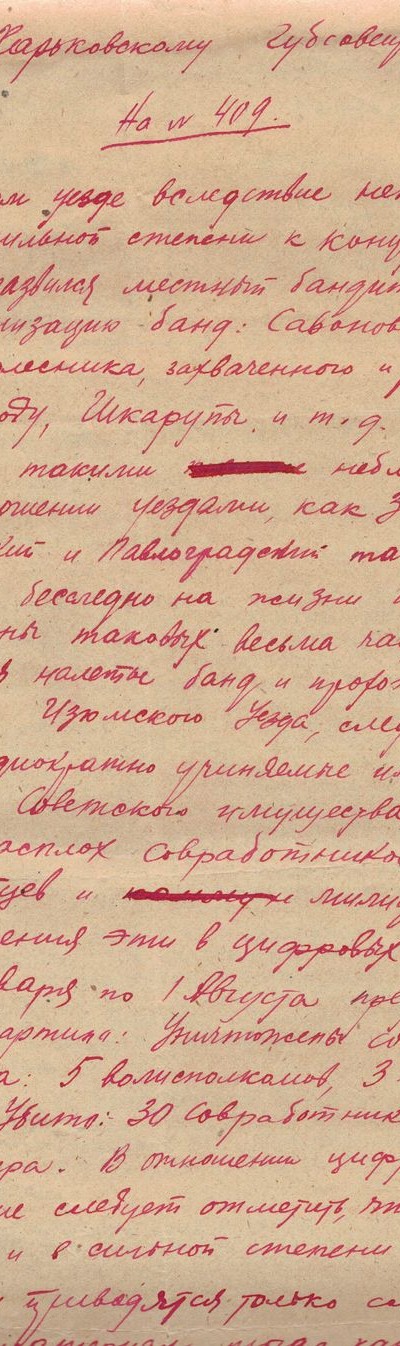 Харьковскому Губсовещ
На № 409.
ом уезде вследствие неп
сильной степени к конц
развился местный бандит
лизацию банд: Савонов
лесника, захваченного и р
оду, Шкарупы и т. д.
такими небл
ошении уездами, как З
кий и Павлоградский та
бесследно на жизни
ны таковых весьма ча
я налеты банд и прохо
Изюмского Уезда, след
днократно учиняемые
Советского имущества
асплох совработников
цев и мили
ения эти в цифровых
варя по 1 Августа пре
артина: Уничтожены со
а: 5 волисполкомов, 3
Убито: 30 совработник
ера. В отношении циф
ие следует отметить, чт
и в сильной степени
приводятся только с